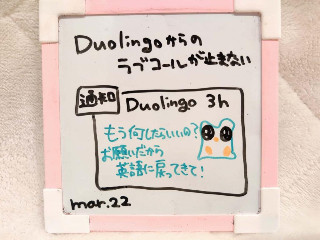 Duolingoからの
ラブコールが止まない
通知
Duolingo 3h
もう何したらいいの?
お願いだから
英語に戻ってきて!
mar.22